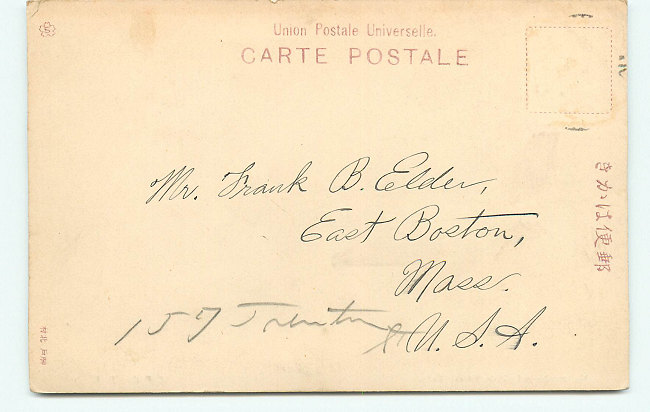 Union Postale Universelle.
CARTE POSTALE
きかは便郵
Mr. Frank B. Elder,
East Boston,
Mass.
157 Trenton
U.S.A.